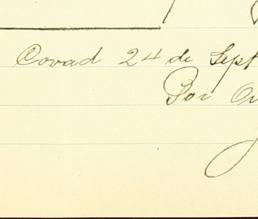 Covad 24 de Sept
Por